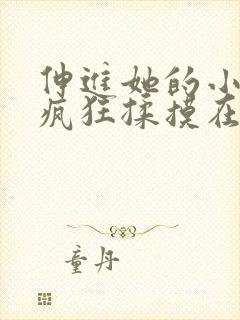 伸进她的小
疯狂揉摸在
童丹